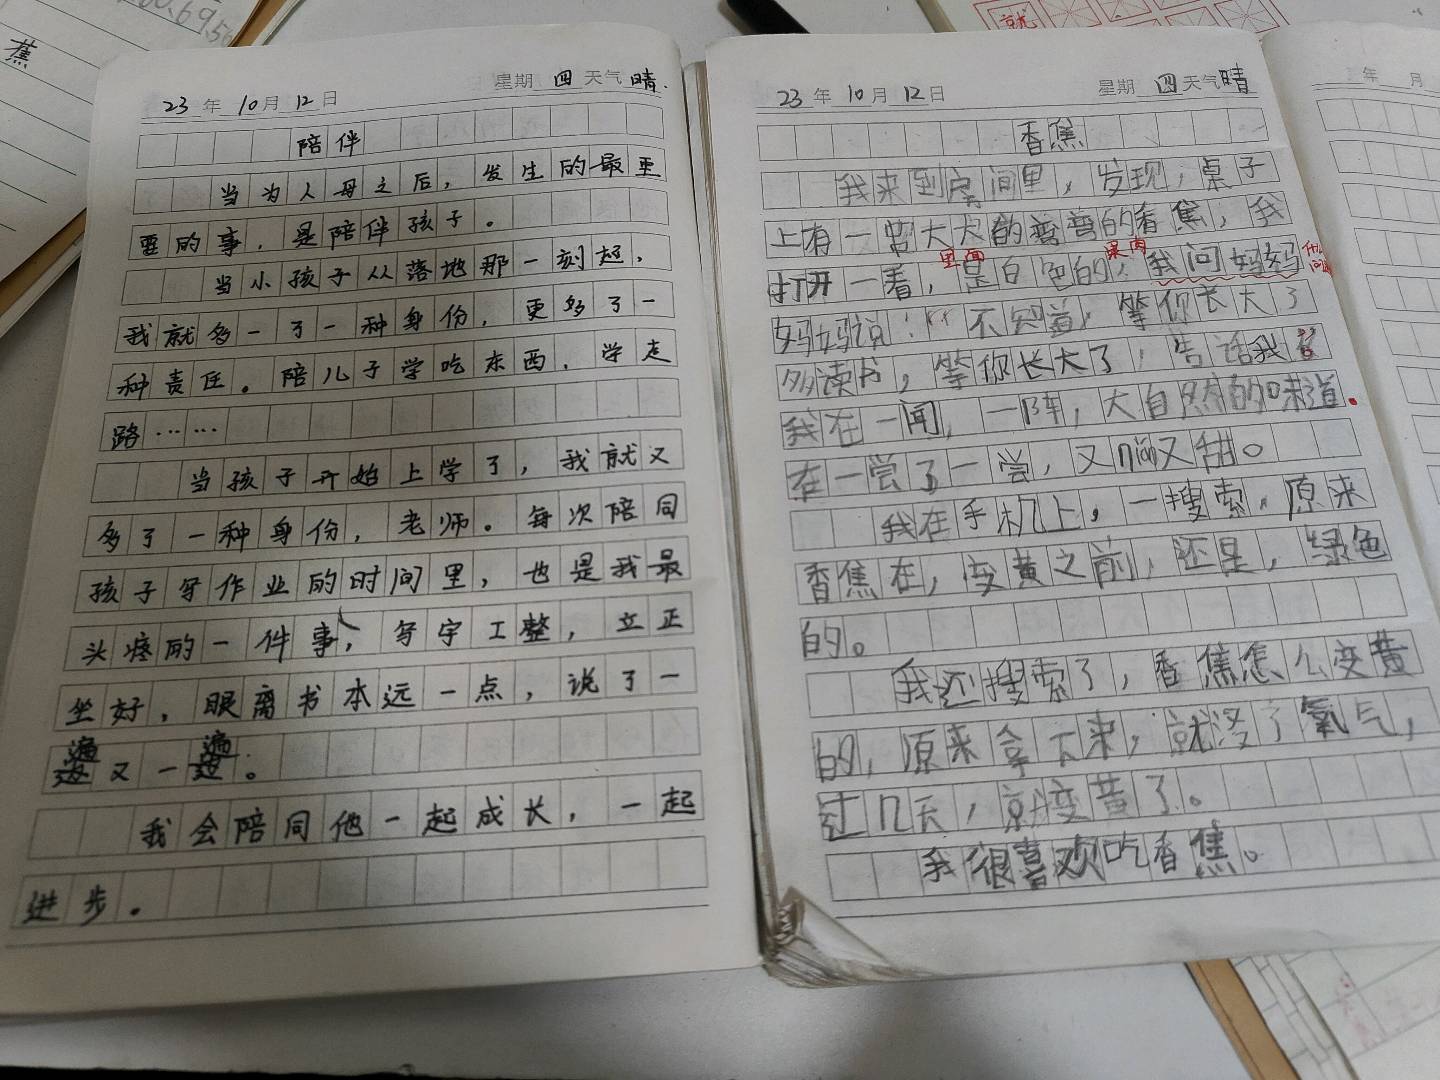 蕉
23 年 10 月 12 日 星期 四 天气 晴.
陪伴
当为人母之后，发生的最重
要的事，是陪伴孩子。
当小孩子从落地那一刻起，
我就多一了一种身份，更多了一
种责任。陪儿子学吃东西，学走
路……
当孩子开始上学了，我就又
多了一种身份，老师。每次陪同
孩子写作业的时间里，也是我最
头疼的一件事，写字工整，立正
坐好，眼离书本远一点，说了一
遍又一遍。
我会陪同他一起成长，一起
进步。
23 年 10 月 12 日 星期 四 天气 晴
香蕉
我来到房间里，发现，桌子
上有一串大大的弯弯的香蕉，我
里面 果肉 什么问题
打开一看，是白色的，我问妈妈
妈妈说：“不知道，等你长大了
多读书，等你长大了，告话我
我在一闻，一阵，大自然的味道.
在一尝了一尝，又啊又甜。
我在手机上，一搜索，原来
香蕉在，变黄之前，还是，绿色
的。
我还搜索了，香蕉怎么变黄
的，原来拿下来，就没了氧气，
过几天，就变黄了。
我很喜欢吃香蕉。
就
年 月